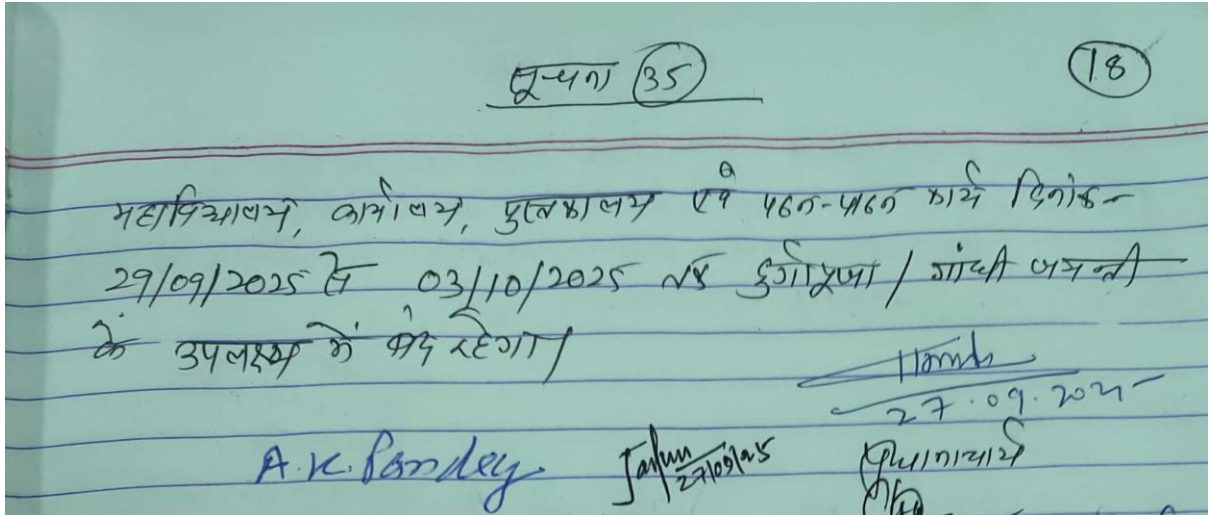 सूचना (35)
18
महाविद्यालय, कार्यालय, पुस्तकालय एवं पठन-पाठन कार्य दिनांक-
29/09/2025 से 03/10/2025 तक दुर्गापूजा / गांधी जयन्ती
के उपलक्ष्य में बंद रहेगा।
27.09.2025
A.K. Pandey 27/09/25 प्रधानाचार्य